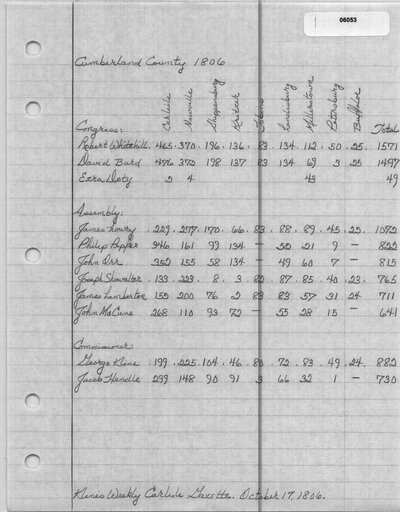 06053
Cumberland County 1806
Carlisle Newville Shippensburg Toboine Landisburg Millerstown Petersburg Buffaloe
Congress: Total
Robert Whitehill 465 370 196 136 83 134 112 50 25 1571
David Bard 476 372 198 137 83 134 69 3 25 1497
Ezra Doty 2 4 43 49
Assembly:
James Lowry 229 277 170 66 83 88 89 45 25 1072
Philip Pepper 346 161 99 134 — 52 21 9 — 822
John Orr 352 155 58 134 — 49 60 7 — 815
Joseph Showalter 133 223 8 3 82 87 85 40 23 765
James Lamberton 155 200 76 2 83 83 57 31 24 711
John McCune 268 110 93 72 — 55 28 15 — 641
Commissioner:
George Kline 199 225 104 46 80 72 83 49 24 882
Jacob Hendle 299 148 90 91 3 66 32 1 — 730
Kline's Weekly Carlisle Gazette. October 17, 1806.